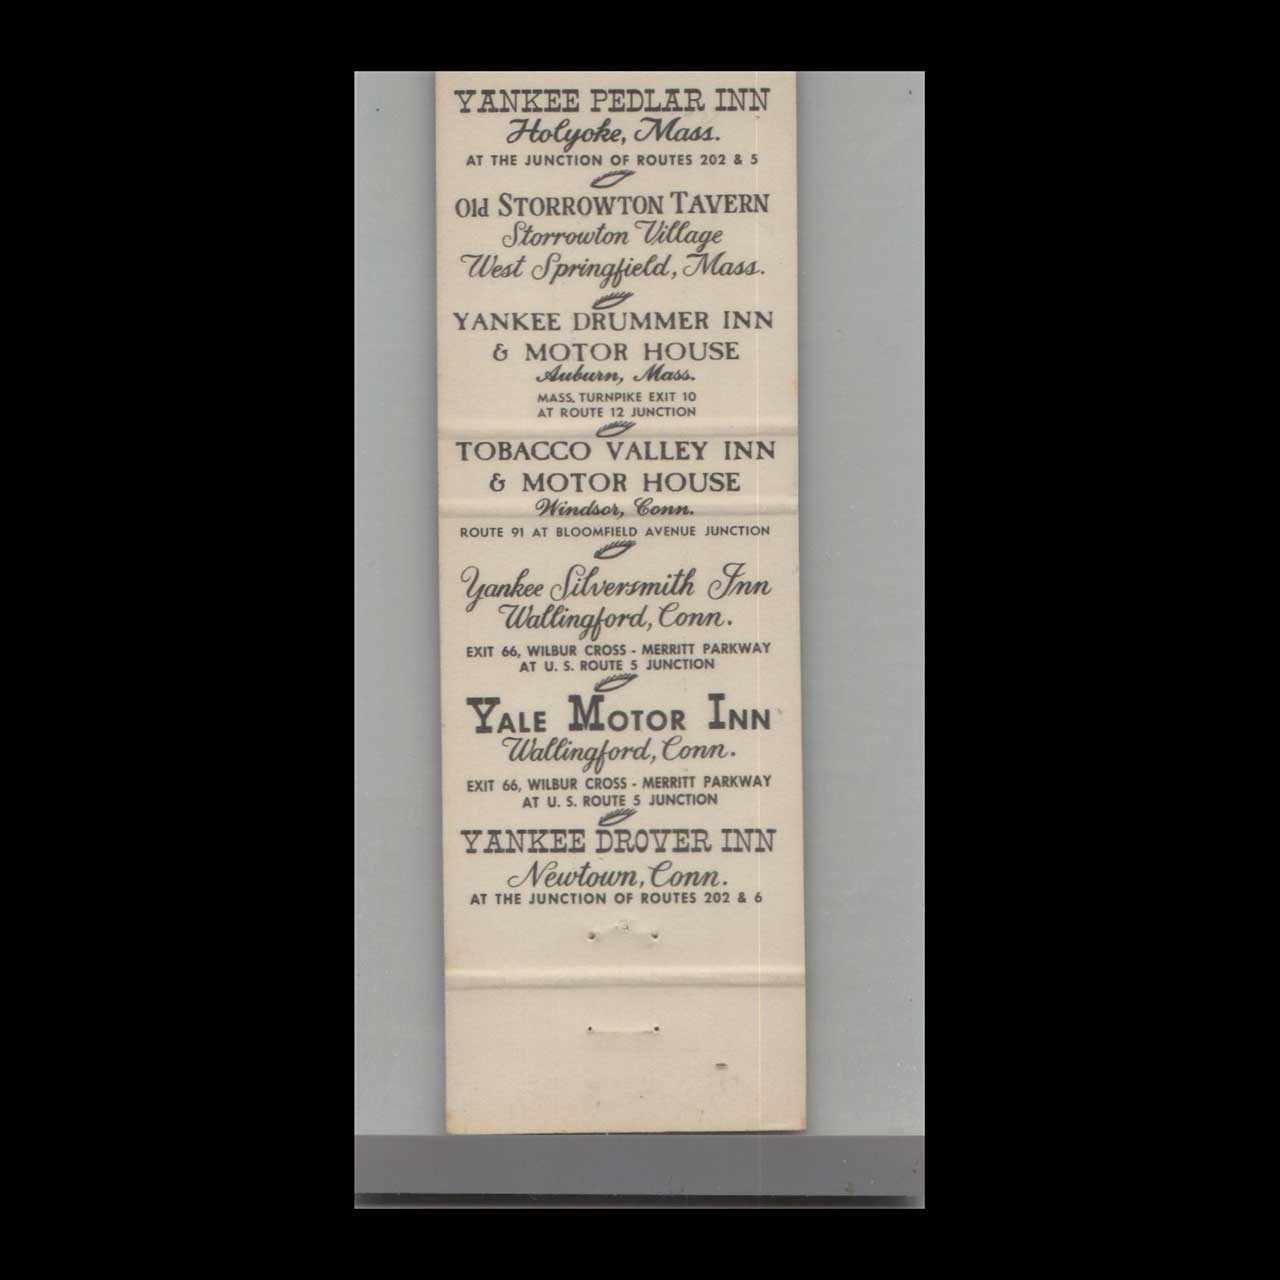 YANKEE PEDLAR INN
Holyoke, Mass.
AT THE JUNCTION OF ROUTES 202 & 5
Old STORROWTON TAVERN
Storrowton Village
West Springfield, Mass.
YANKEE DRUMMER INN
& MOTOR HOUSE
Auburn, Mass.
MASS. TURNPIKE EXIT 10
AT ROUTE 12 JUNCTION
TOBACCO VALLEY INN
& MOTOR HOUSE
Windsor, Conn.
ROUTE 91 AT BLOOMFIELD AVENUE JUNCTION
Yankee Silversmith Inn
Wallingford, Conn.
EXIT 66, WILBUR CROSS - MERRITT PARKWAY
AT U. S. ROUTE 5 JUNCTION
YALE MOTOR INN
Wallingford, Conn.
EXIT 66, WILBUR CROSS - MERRITT PARKWAY
AT U. S. ROUTE 5 JUNCTION
YANKEE DROVER INN
Newtown, Conn.
AT THE JUNCTION OF ROUTES 202 & 6